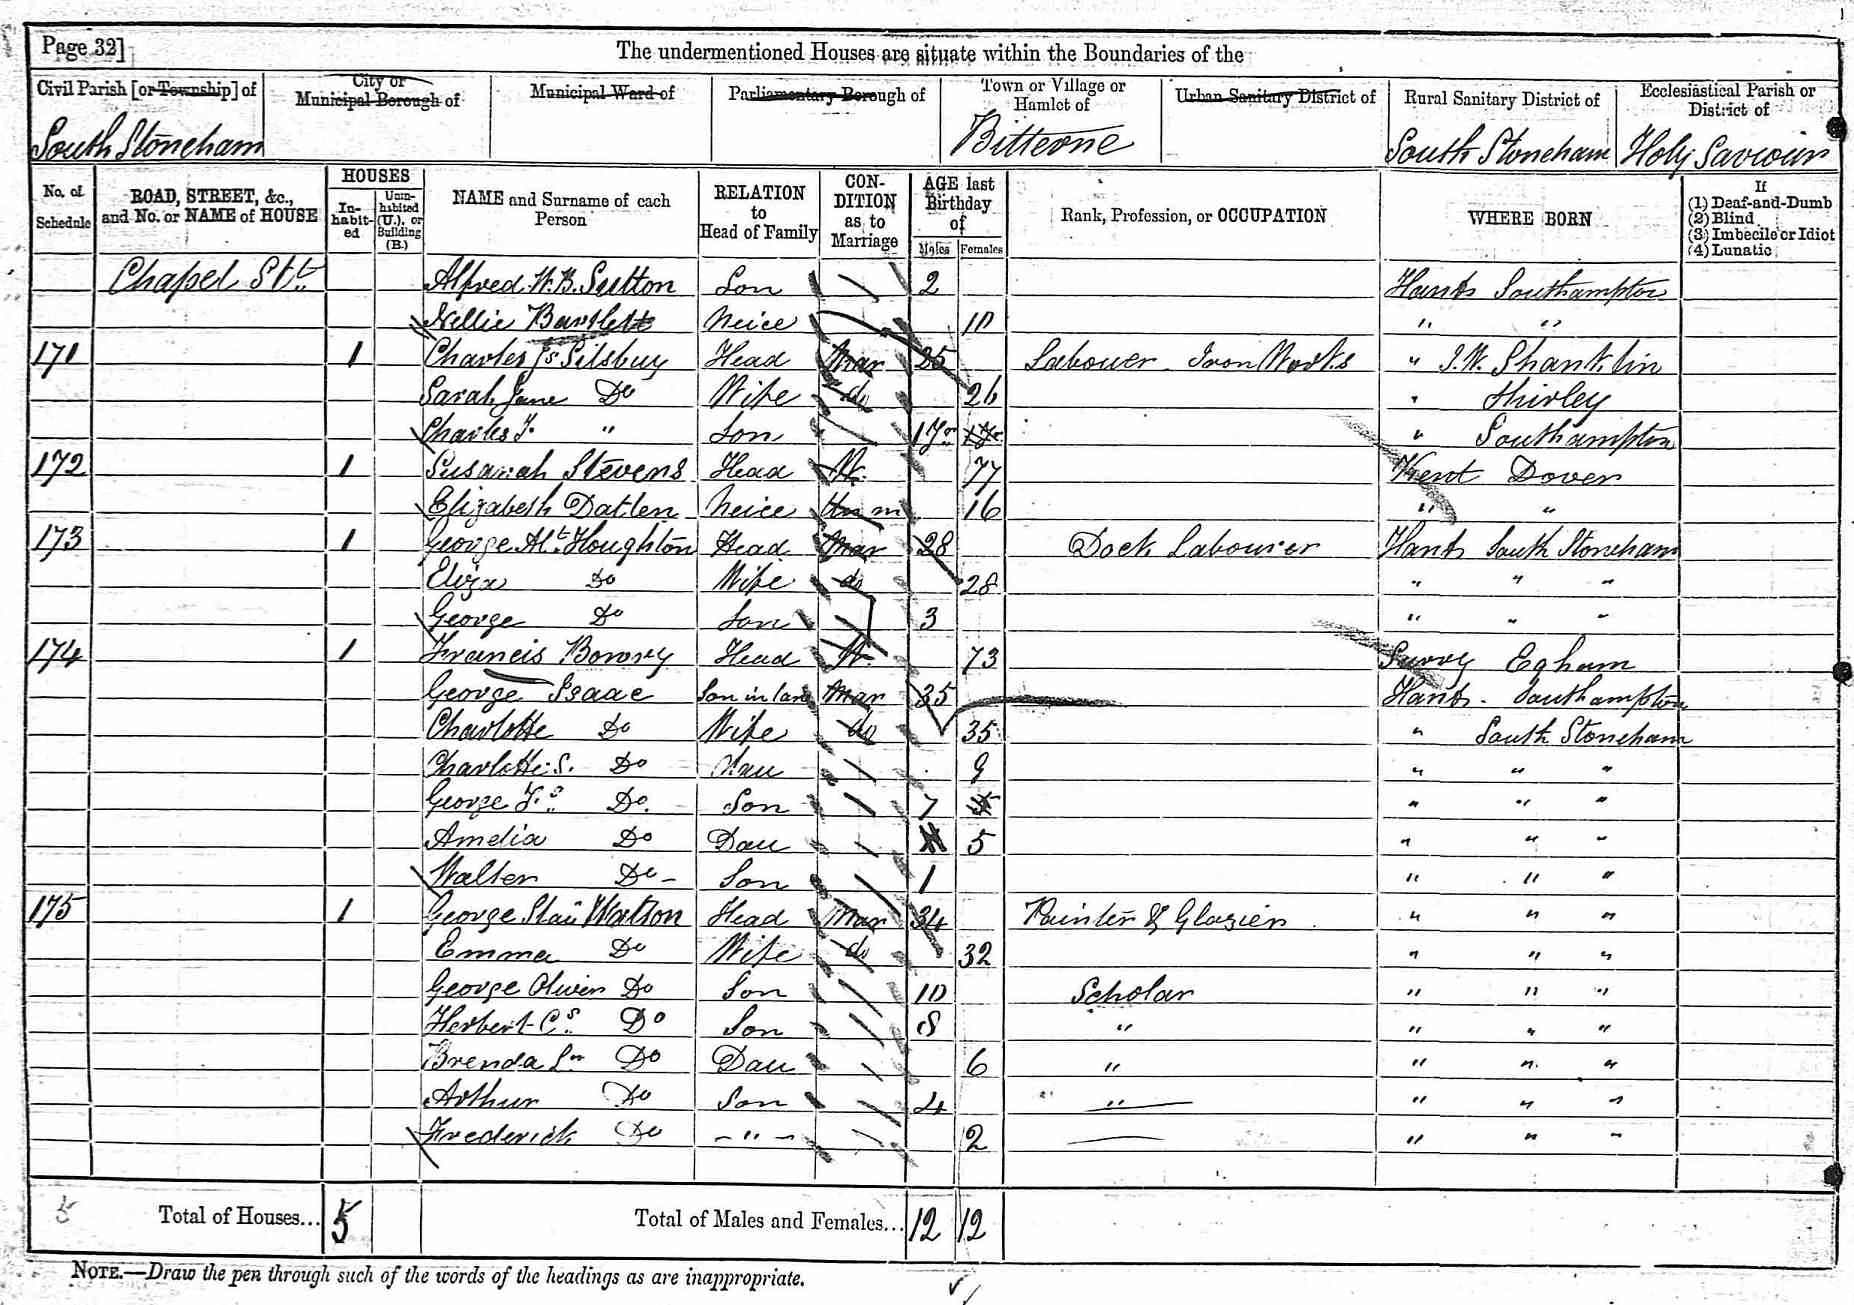 Page 32]
The undermentioned Houses are situate within the Boundaries of the
Civil Parish [or Township] of
City or Municipal Borough of
Municipal Ward of
Parliamentary Borough of
Town or Village or Hamlet of
Urban Sanitary District of
Rural Sanitary District of
Ecclesiastical Parish or District of
South Stoneham Bitterne South Stoneham Holy Saviour
No. of Schedule
ROAD, STREET, &c., and No. or NAME of HOUSE
HOUSES
In-habit-ed
Unin-habited (U.), or Building (B.)
NAME and Surname of each Person
RELATION to Head of Family
CON-DITION as to Marriage
AGE last Birthday of
Males Females
Rank, Profession, or OCCUPATION
WHERE BORN
If
(1) Deaf-and-Dumb
(2) Blind
(3) Imbecile or Idiot
(4) Lunatic
Chapel St. Alfred W. B. Sutton Son 2 Hants Southampton
Nellie Bartlett Neice 10 " "
171 1 Charles Js Silsbury Head Mar 25 Labourer Iron Works " I.W. Shanklin
Sarah Jane Do Wife do 26 " Shirley
Charles " Son " Southampton
172 1 Susanah Stevens Head W. 77 Kent Dover
Elizabeth Datlen Neice Unm 16 " "
173 1 George At. Houghton Head Mar 28 Dock Labourer Hants South Stoneham
Eliza Do Wife do 28 " " "
George Do Son 3 " " "
174 1 Francis Bowry Head W. 73 Surry Egham
George Isaac Son in law Mar 35 Hants. Southampton
Charlotte Do Wife do 35 " South Stoneham
Charlotte S. Do Dau 9 " " "
George Do. Son 7 " " "
Amelia Do Dau 5 " " "
Walter Do - Son 1 " " "
175 1 George Watson Head Mar 34 Painter & Glazier " " "
Emma Do Wife do 32 " " "
George Oliver Do Son 10 Scholar " " "
Herbert Cs. Do Son 8 " " " "
Brenda Do Dau 6 " " " "
Arthur Do Son 4 " " " "
Frederick Do - " - 2 " " "
5 Total of Houses... 5 Total of Males and Females... 12 12
NOTE.—Draw the pen through such of the words of the headings as are inappropriate.